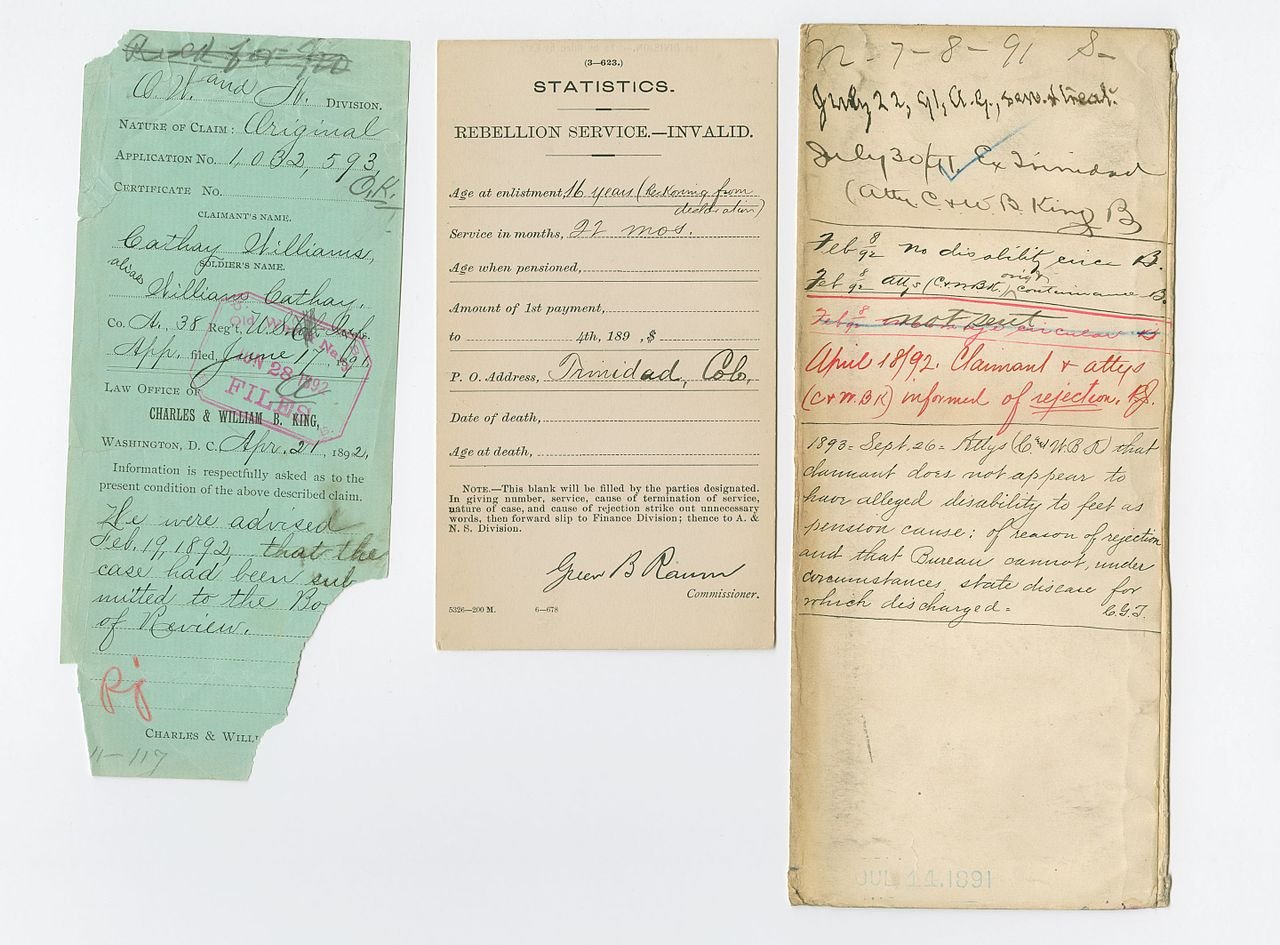 O.W. and N. DIVISION.
NATURE OF CLAIM: Original
APPLICATION NO. 1,032,593
CERTIFICATE NO. O.K.
CLAIMANT'S NAME.
Cathay Williams,
SOLDIER'S NAME.
alias William Cathay.
Co. A, 38 Reg't, U.S. Inf
App. filed, June 17, 91
Old War
No. 3
JUN 28 1892
FILES
LAW OFFICE OF
CHARLES & WILLIAM B. KING,
WASHINGTON, D. C. Apr. 21, 1892,
Information is respectfully asked as to the
present condition of the above described claim.
We were advised
Feb. 19, 1892, that the
case had been sub
mitted to the Bo
of Review.
Rj
CHARLES & WILL
11-117
(3—623.)
STATISTICS.
REBELLION SERVICE.—INVALID.
Age at enlistment, 16 years (Reckoning from
declaration)
Service in months, 22 mos.
Age when pensioned,
Amount of 1st payment,
to 4th, 189 , $
P. O. Address, Trinidad, Colo,
Date of death,
Age at death,
NOTE.—This blank will be filled by the parties designated.
In giving number, service, cause of termination of service,
nature of case, and cause of rejection strike out unnecessary
words, then forward slip to Finance Division; thence to A. &
N. S. Division.
Green B Raum
Commissioner.
5326—200 M. 6—678
N-7-8-91 S-
July 22, 91, A.G., serv. & treat.
July 30/91 Ex Trinidad
(Atty C & W. B. King B
Feb 8/92 no disability B.
Feb 8/92 attys (C & W B K.) B.
Feb 8/92 not sent circular
April 18/92. Claimant & attys
(C & W. B K) informed of rejection. Rj.
1893 - Sept. 26 - Attys (C. and W. B K) that
claimant does not appear to
have alleged disability to feet as
pension cause; of reason of rejection
and that Bureau cannot, under
circumstances state disease for
which discharged = C.G.T.
JUL 14.1891